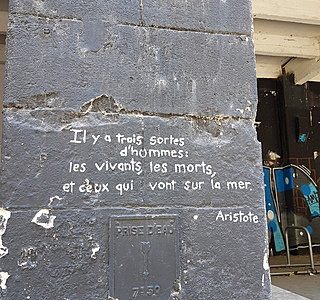 Il y a trois sortes
d'hommes:
les vivants, les morts,
et ceux qui vont sur la mer.
Aristote
PRISE D'EAU
7159